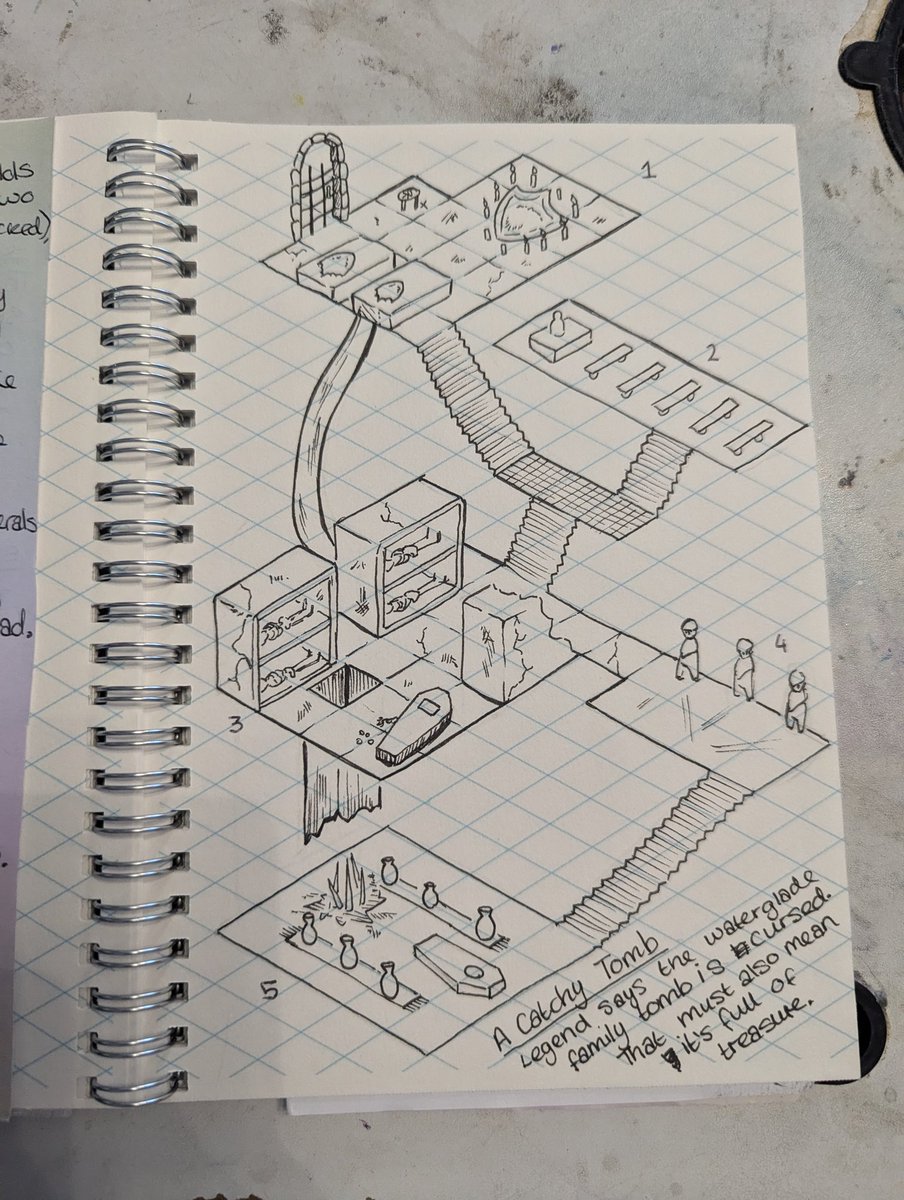 1
2
3
4
5
A Catchy Tomb
Legend says the waterglade
family tomb is cursed.
That must also mean
it's full of
treasure.